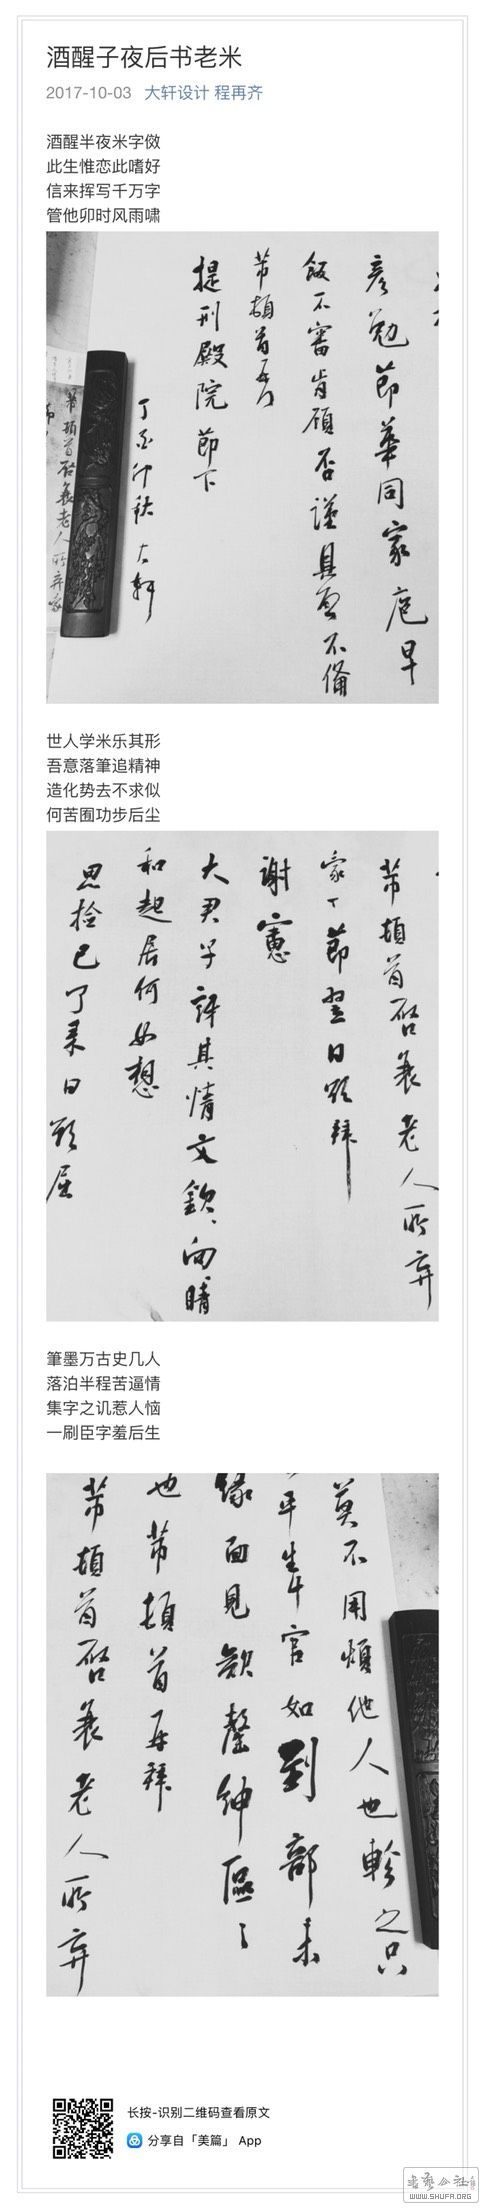 酒醒子夜后书老米
2017-10-03 大轩设计 程再齐
酒醒半夜米字傚
此生惟恋此嗜好
信来挥写千万字
管他卯时风雨啸
彦勉節華同家庖早
飯不審肯頋否謹具啓不備
芾頓首再
提刑殿院節下
丁酉仲秋 大軒
芾頓首啓衰老人所弃
世人学米乐其形
吾意落筆追精神
造化势去不求似
何苦囿功步后尘
芾頓首啓衰老人所弃
蒙丁節翌日影拜
謝憲
大君子詳其情文欽向晴
和起居何如想
思撿已了来日影屈
筆墨万古史几人
落泊半程苦逼情
集字之讥惹人恼
一刷臣字羞后生
莫不用煩他人也軫之只
平生牛官如到部未
緣面見欲罄紳區々
也芾頓首再拜
芾頓首啓衰老人所弃
长按-识别二维码查看原文
分享自「美篇」 App
书艺公社
WWW.SHUFA.ORG